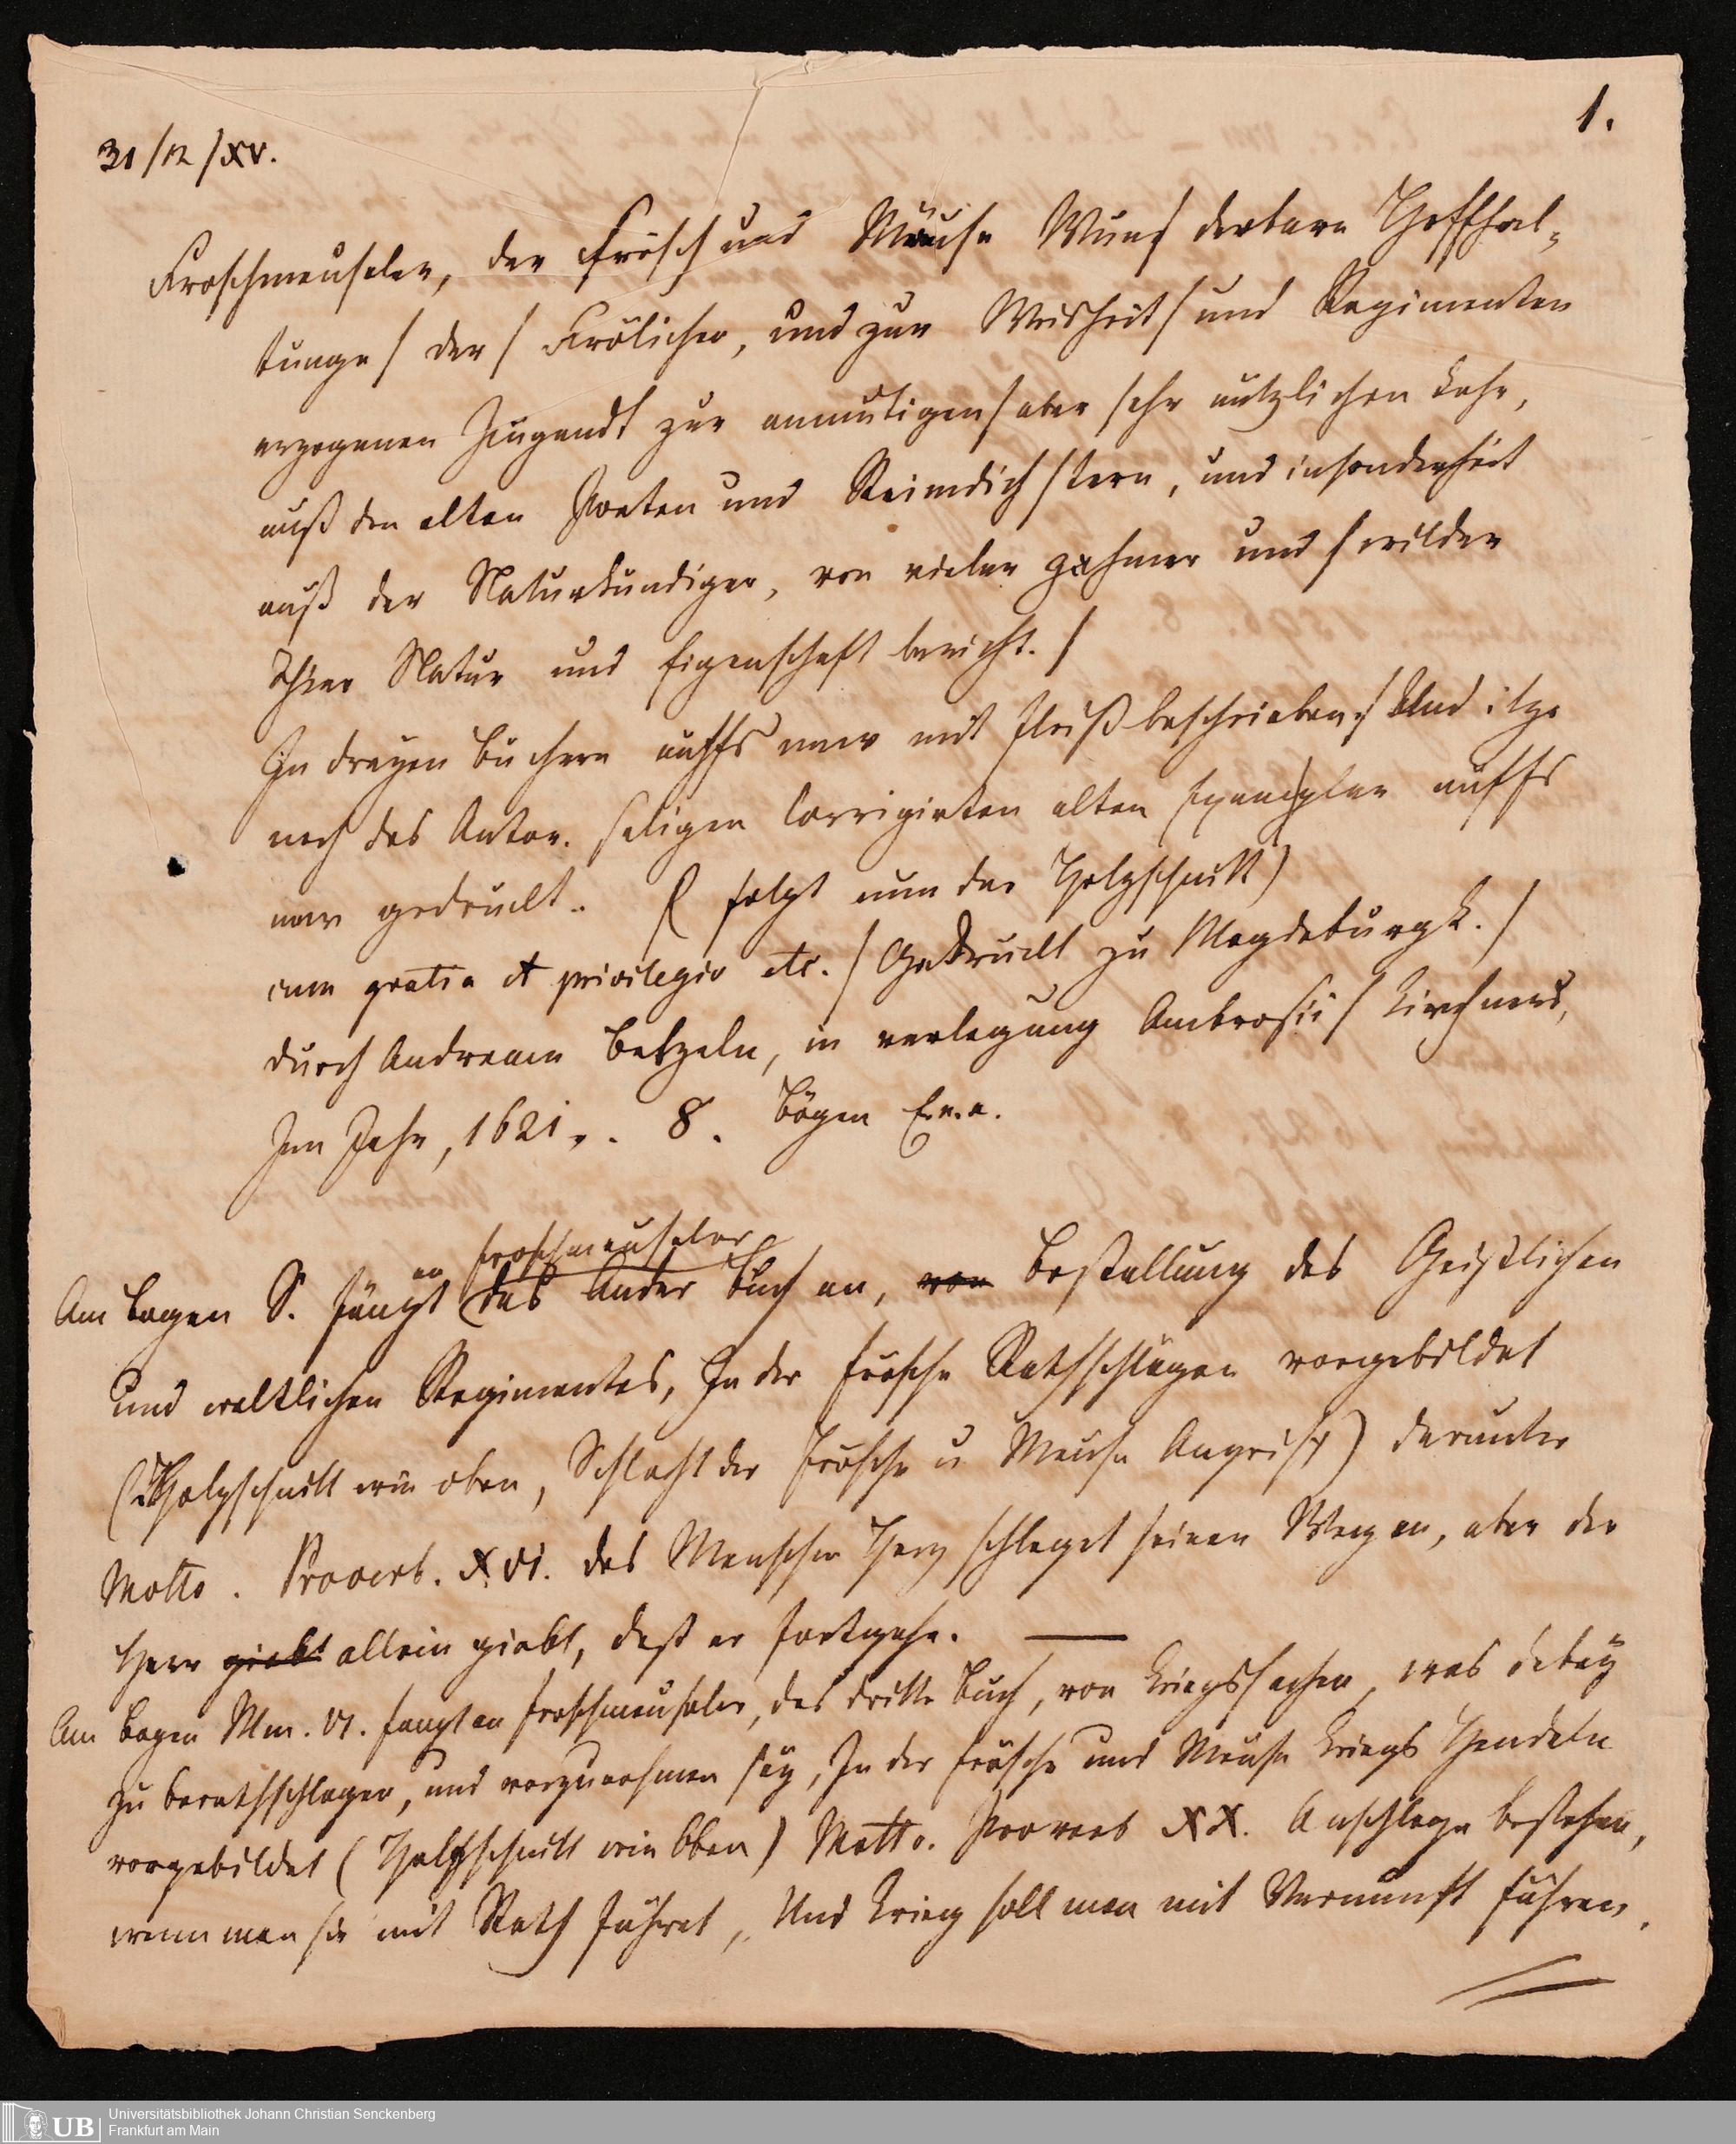 1.
31/12/XV.
Froschmeuseler, der Frösch und Mäuse Wun/ derbare Hoffhal-
tunge / der / Frölichen, und zur Weisheit / und Regimenten
erzogenen Jugendt zur anmutigen / aber sehr nützlichen Lehr,
auß den alten Poeten und Reimdich/tern, und insonderheit
auß der Naturkundiger, von vieler zahmer und / wilder
Thier Natur und Eigenschaft bericht. /
In dreyen Buchern auffs new mit fleiß beschrieben / Und itzo
nach des Autor. seligen Corrigirten alten Exemplar auffs
new gedruckt. (folgt nun der Holzschnitt)
cum gratia et privilegio etc. / Gedruckt zu Magdeburgk. /
durch Andream Betzeln, in verlegung Ambrosii / Kirchners,
Im Jahr, 1621. 8. Bögen
an Froschmeuseler
Am Bogen S. fängt das Ander Buch an, von Bestellung des Geistlichen
und weltlichen Regimentes, In der Frösche Rathschlägen vorgebildet
(Holzschnitt wie oben, Schlacht der Frösche u Meuse Angrift) darunter
Motto. Proverb. XVI. des Menschen Herz schleget seinen Weg an, aber der
Herr giebt allein giebt, daß er fortgehe. —
Am Bogen Mm. VI. fangt an Froschmeuseler, das dritte Buch, von Kriegssachen, was dabey
zu berathschlagen, und vorzunehmen sey, In der Frösche und Meuse Kriegs Hendeln
vorgebildet (Holzschnitt wie Oben) Motto. Proverb XX. Anschlege bestehen,
wenn man sie mit Rath führet, Und Krieg soll man mit Vernunft führen.
UB
Universitätsbibliothek Johann Christian Senckenberg
Frankfurt am Main